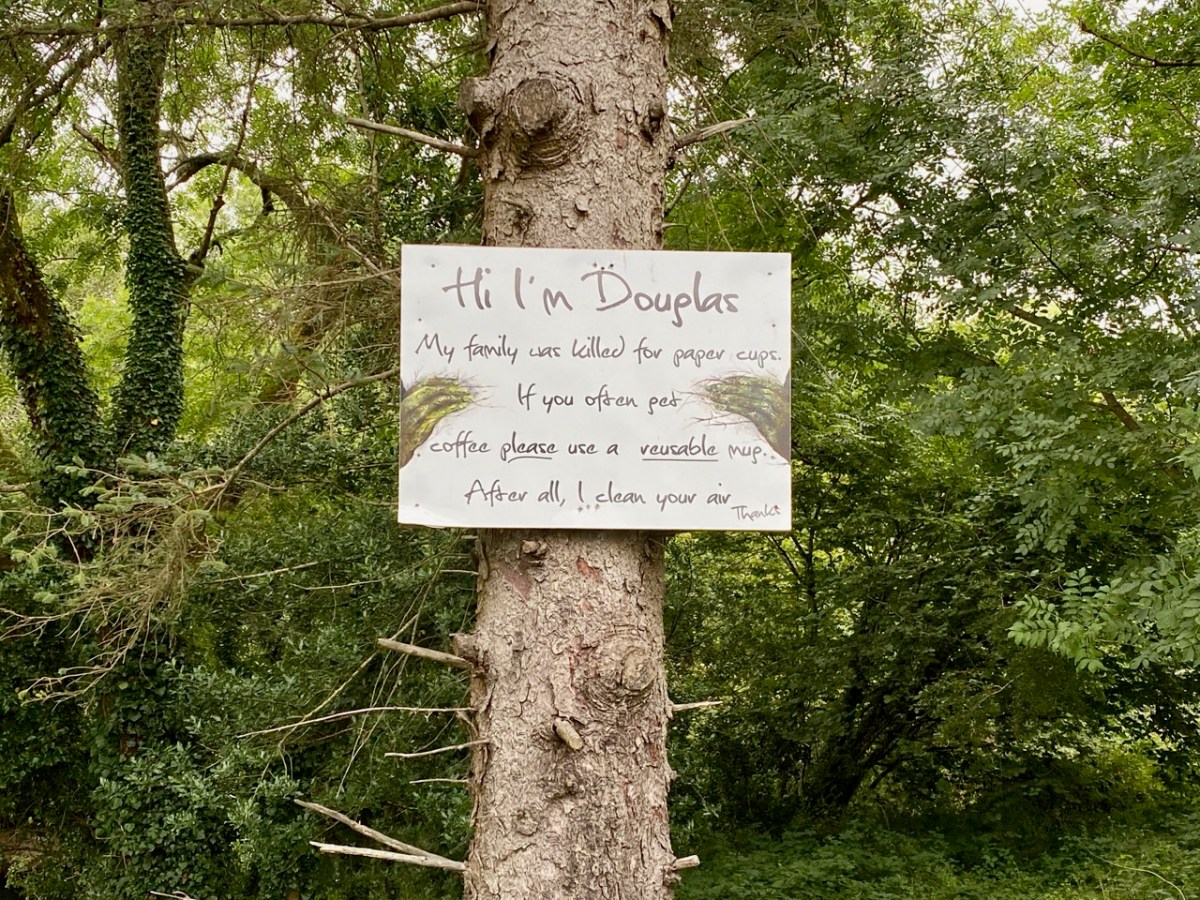 Hi I'm Douglas
My family was killed for paper cups.
If you often get
coffee please use a reusable mug.
After all, I clean your air
Thanks